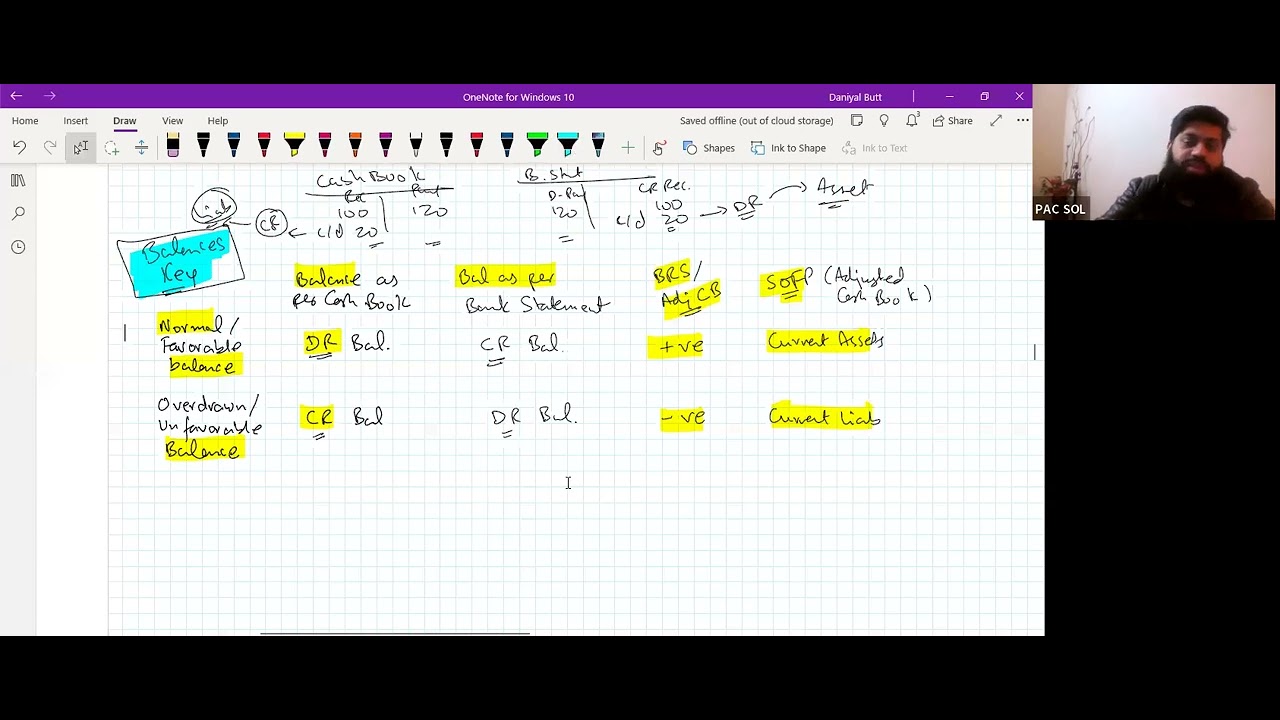 OneNote for Windows 10
Daniyal Butt
Home Insert Draw View Help
Saved offline (out of cloud storage)
3
Share
Shapes
Ink to Shape
Ink to Text
PAC SOL
Cash Book
B. Stmt
Rec
CR Rec.
100 120
120
100
Liab
CR
c/d 20
c/d 20
DR
Asset
Balances
Key
Balance as
per Cash Book
Bal as per
Bank Statement
BRS/
Adj CB
SOFP (Adjusted
Cash Book)
Normal/
Favorable
balance
DR Bal.
CR Bal.
+ve
Current Assets
Overdrawn/
Unfavorable
Balance
CR Bal
DR Bal.
-ve
Current Liab